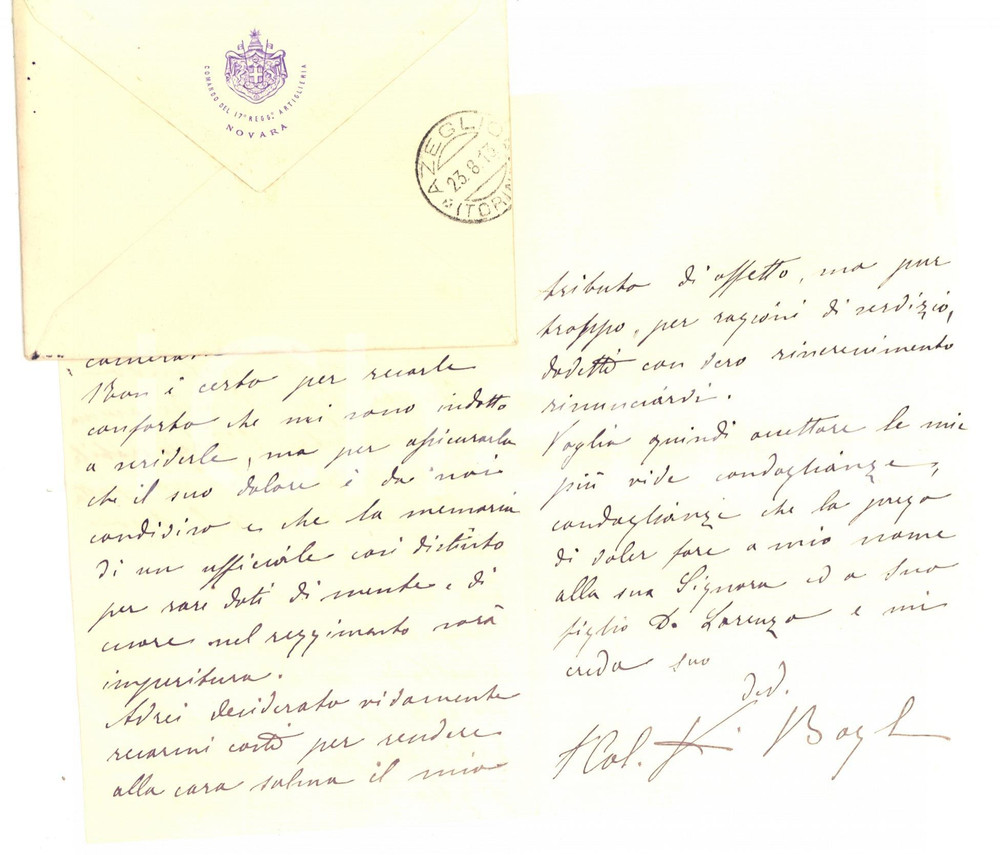 COMANDO DEL 17° REGG.° ARTIGLIERIA
NOVARA
AZEGLIO
23.8.13
(TORIN
Non è certo per recarle
conforto che mi sono indotto
a scriverle, ma per assicurarla
che il suo dolore è da noi
condiviso e che la memoria
di un ufficiale così distinto
per rare doti di mente e di
cuore nel reggimento sarà
imperitura.
Avrei desiderato vivamente
recarmi costì per rendere
alla cara salma il mio
tributo di affetto, ma pur
troppo, per ragioni di servizio,
dovetti con vero rincrescimento
rinunciarvi.
Voglia quindi accettare le mie
più vive condoglianze,
condoglianze che la prego
di voler fare a mio nome
alla sua Signora ed a suo
figlio D. Lorenzo e mi
creda suo
dev.
Col.